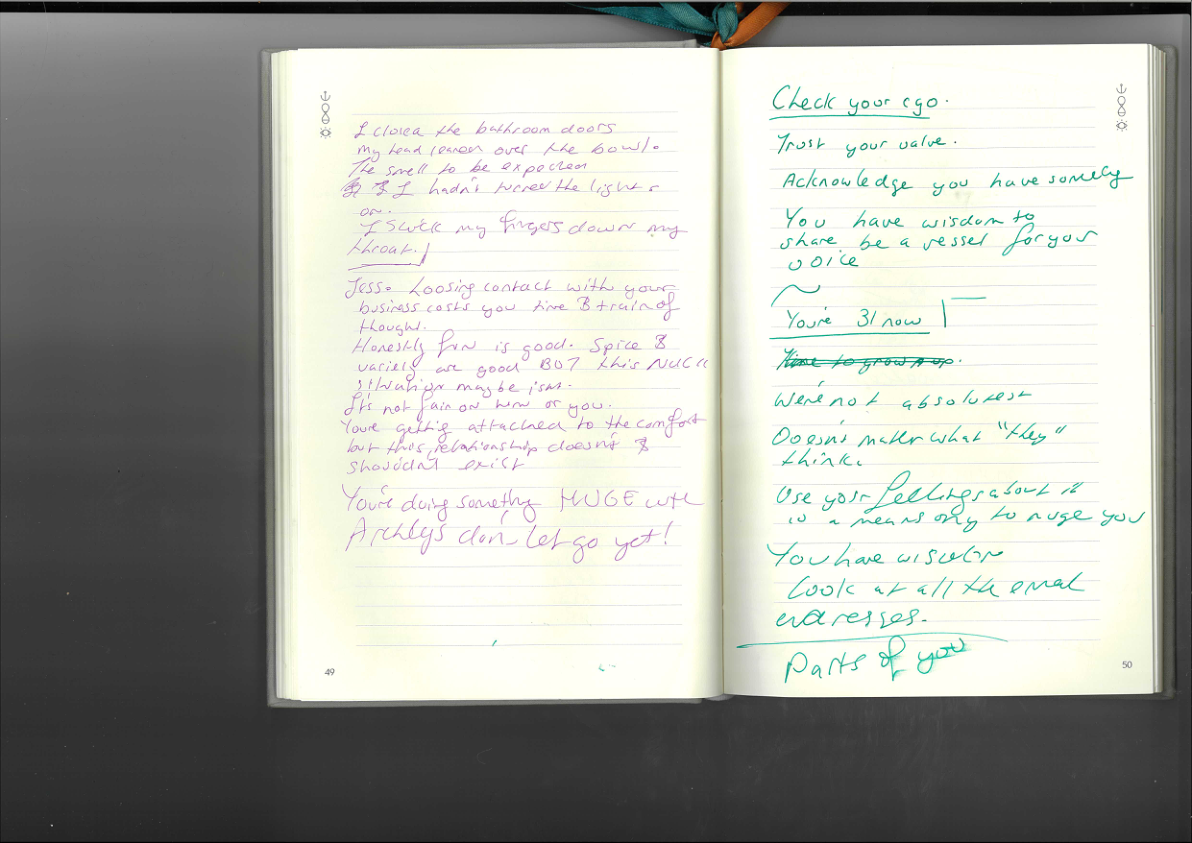 I closed the bathroom doors
my head leaned over the bowl.
The smell to be expected
I hadn't turned the lights
on.
I stuck my fingers down my
throat.
Jess. Loosing contact with your
business costs you time & train of
thought.
Honestly fun is good. Spice &
variety are good BUT this
situation maybe isnt.
It's not fair on him or you.
Youre getting attached to the comfort
but this relationship doesn't &
shouldn't exist
You're doing something HUGE with
don't let go yet!
49
Check your ego.
Trust your value.
Acknowledge you have
You have wisdom to
share be a vessel for your
voice
You're 31 now
Time to grow up.
We're not absolutest
Doesn't matter what "they"
think.
Use your feelings about it
as a means only to nuge you
You have wisdom
Look at all the email
addresses.
Parts of you
50